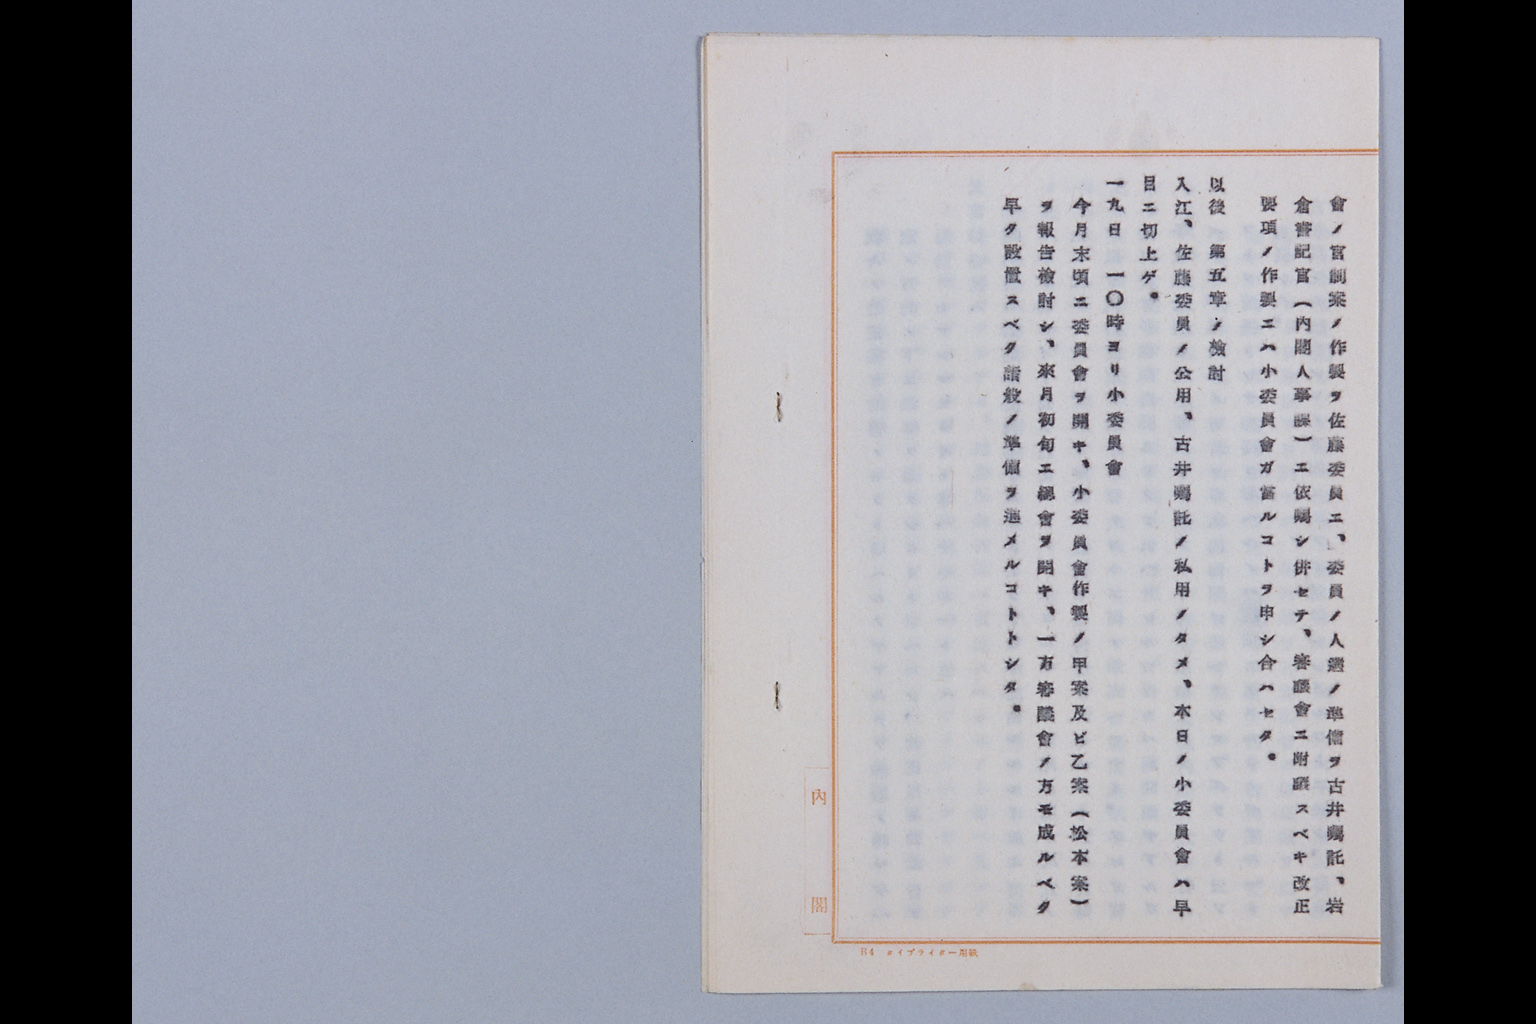 會ノ官制案ノ作製ヲ佐藤委員エ、委員ノ人選ノ準備ヲ古井囑託、岩
倉書記官（內閣人事課）エ依囑シ併セテ、審議會ニ附議スベキ改正
要項ノ作製ニハ小委員會ガ當ルコトヲ申シ合ハセタ。
以後　第五章ノ檢討
入江、佐藤委員ノ公用、古井囑託ノ私用ノタメ、本日ノ小委員會ハ早
目ニ切上ゲ。
一九日　一〇時ヨリ小委員會
今月末頃ニ委員會ヲ開キ、小委員會作製ノ甲案及ビ乙案（松本案）
ヲ報告檢討シ、來月初旬エ總會ヲ開キ、一方審議會ノ方モ成ルベク
早ク設置スベク諸般ノ準備ヲ進メルコトトシタ。
內閣
B4　タイプライター用紙